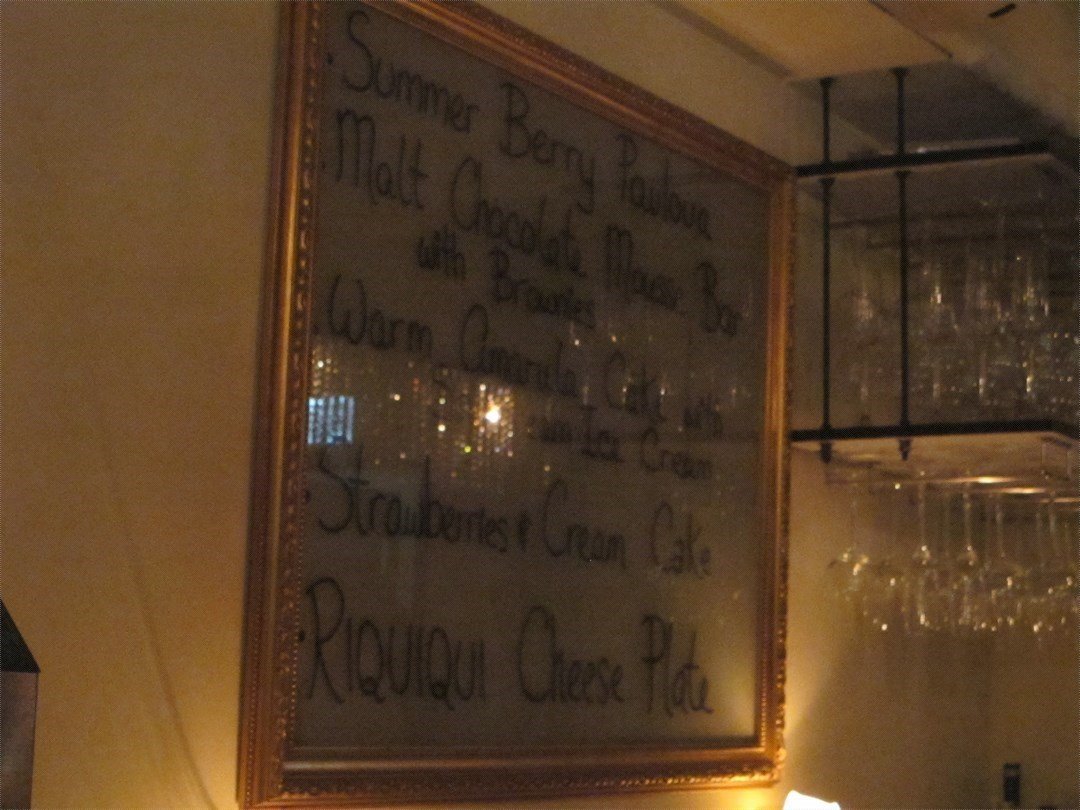 · Summer Berry Pavlova
· Malt Chocolate Mousse Bar
with Brownies
· Warm Amarula Cake with
Ice Cream
· Strawberries & Cream Cake
· RIQUIQUI Cheese Plate